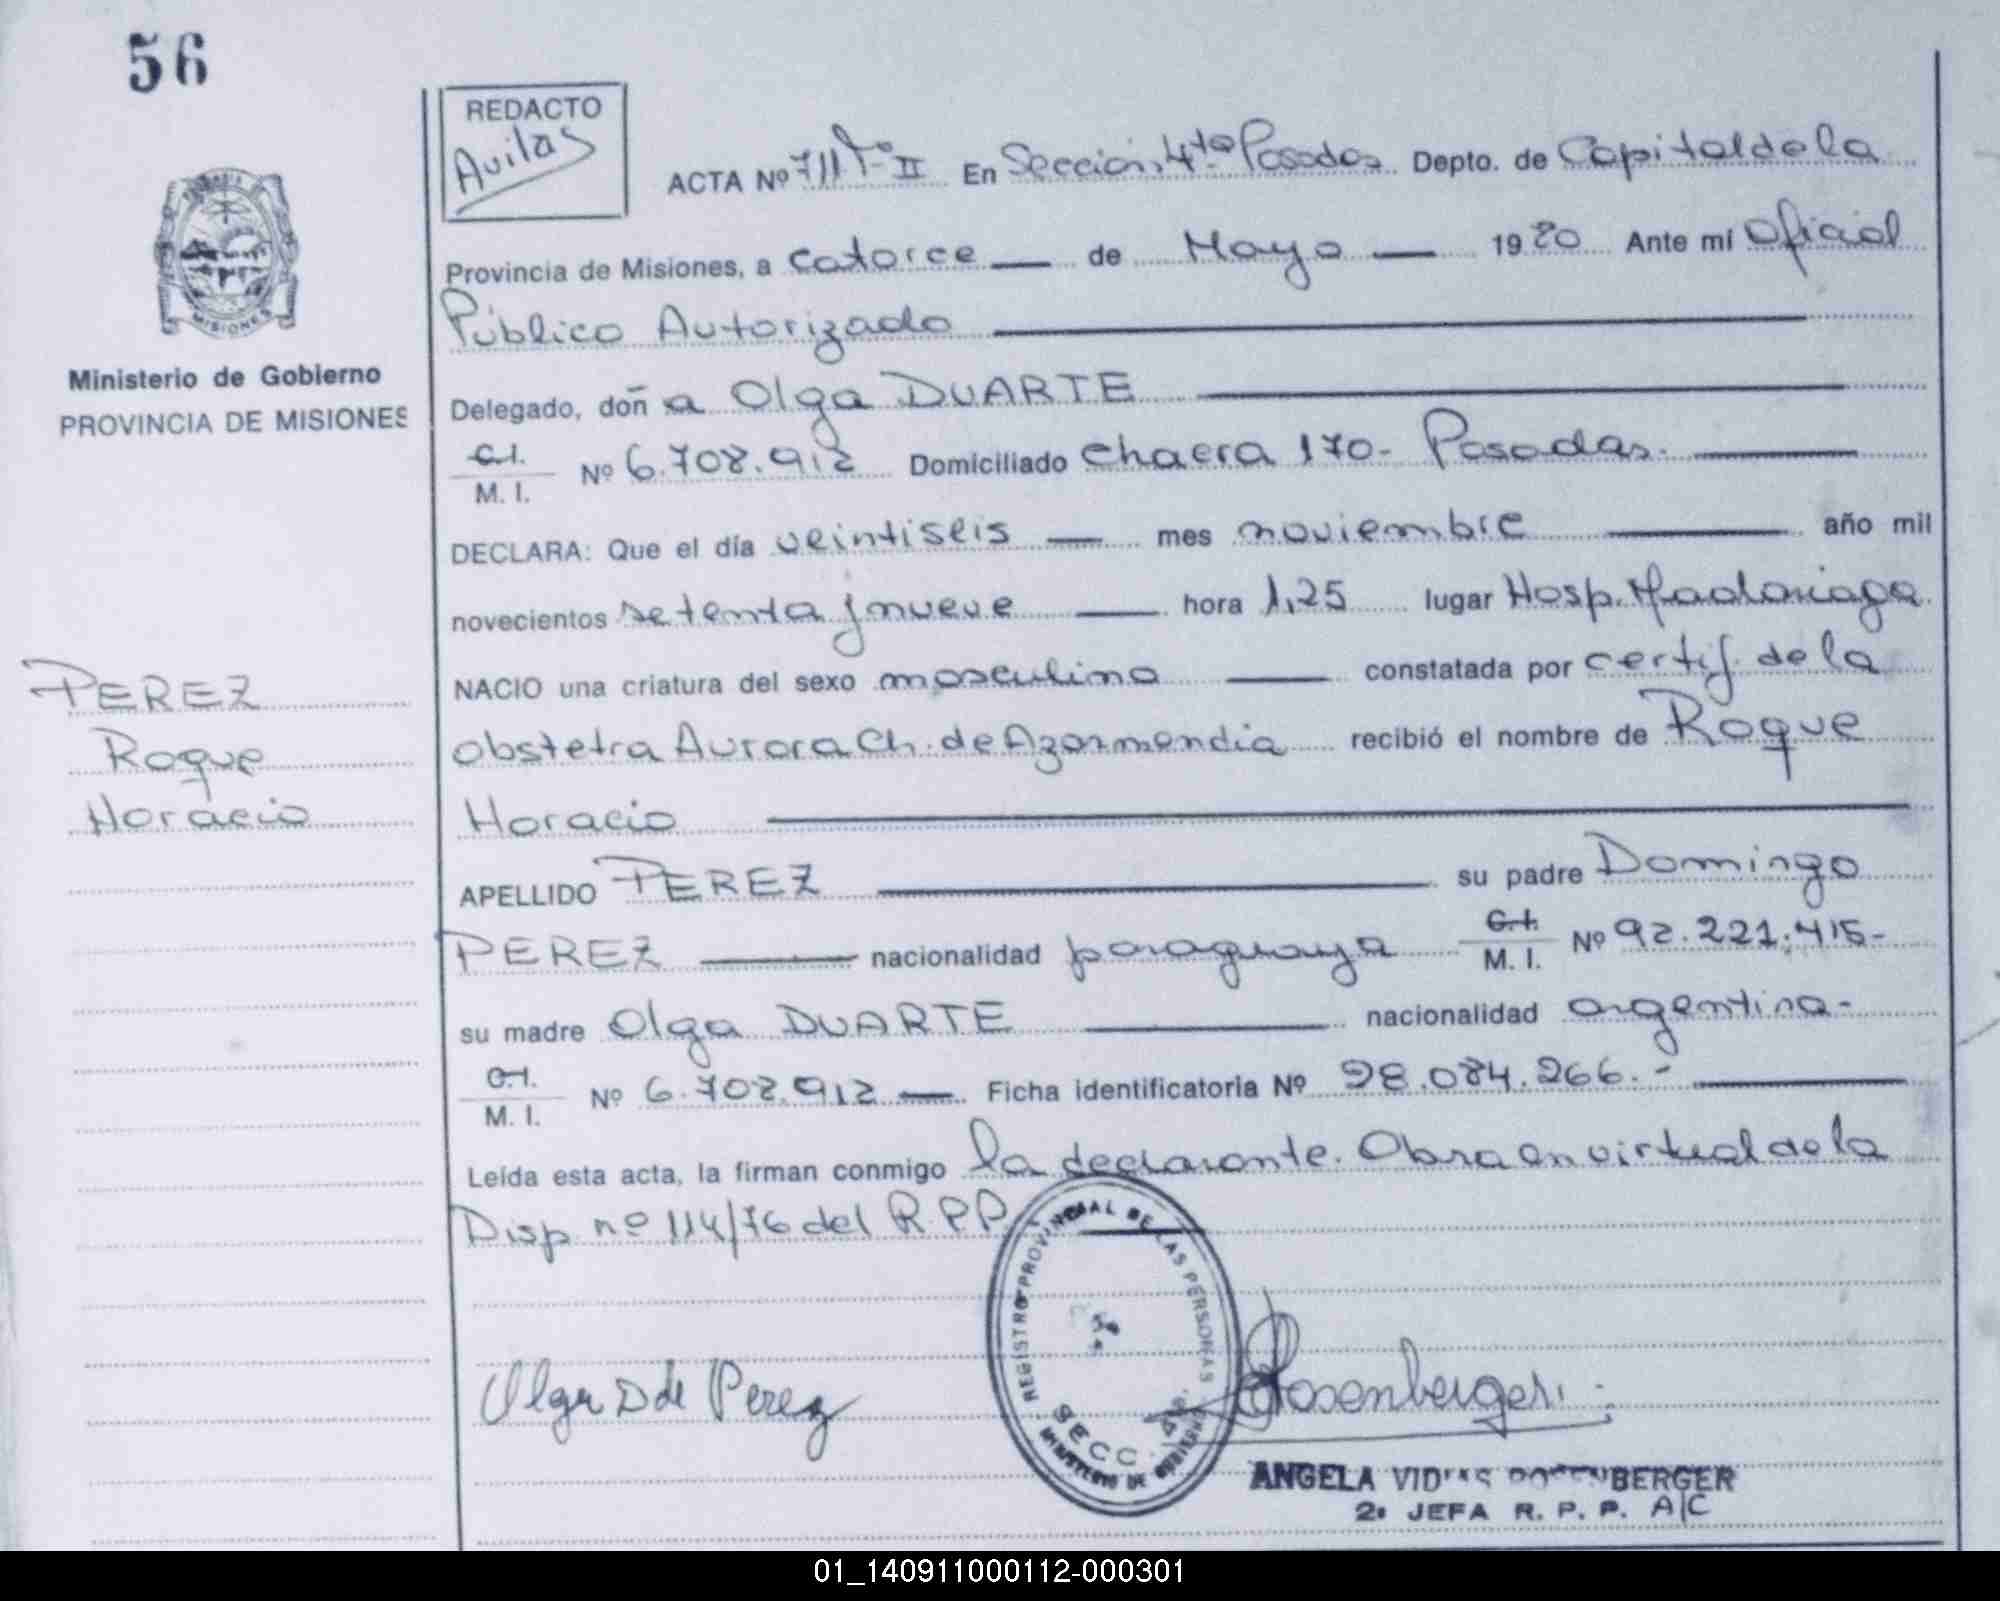 56
REDACTO
Avilas
ACTA Nº 711 Tº II En Sección 4ta Posadas Depto. de Capital de la
Provincia de Misiones, a catorce — de Mayo — 1980 Ante mí Oficial
Público Autorizado
Ministerio de Gobierno
PROVINCIA DE MISIONES
Delegado, doña Olga DUARTE
C.I.
M. I. Nº 6.708.912 Domiciliado Chacra 170- Posadas.
DECLARA: Que el día veintiseis — mes noviembre — año mil
novecientos setenta y nueve — hora 1,25 lugar Hosp. Madariaga
NACIO una criatura del sexo masculino — constatada por certif. de la
obstetra Aurora Ch. de Azarmendia recibió el nombre de Roque
Horacio
PEREZ
Roque
Horacio
APELLIDO PEREZ — su padre Domingo
PEREZ — nacionalidad paraguaya C.I.
M. I. Nº 92.221.415-
su madre Olga DUARTE — nacionalidad argentina-
C.I.
M. I. Nº 6.708.912 — Ficha identificatoria Nº 28.084.266.-
Leída esta acta, la firman conmigo la declarante. Obra en virtud de la
Disp. nº 114/76 del R.P.P.
REGISTRO PROVINCIAL DE LAS PERSONAS
SECC. 4a.
MINISTERIO DE GOBIERNO
MISIONES
Olga D de Perez
Rosenberger
ANGELA VIDAS ROSENBERGER
2a JEFA R. P. P. A/C
01_140911000112-000301